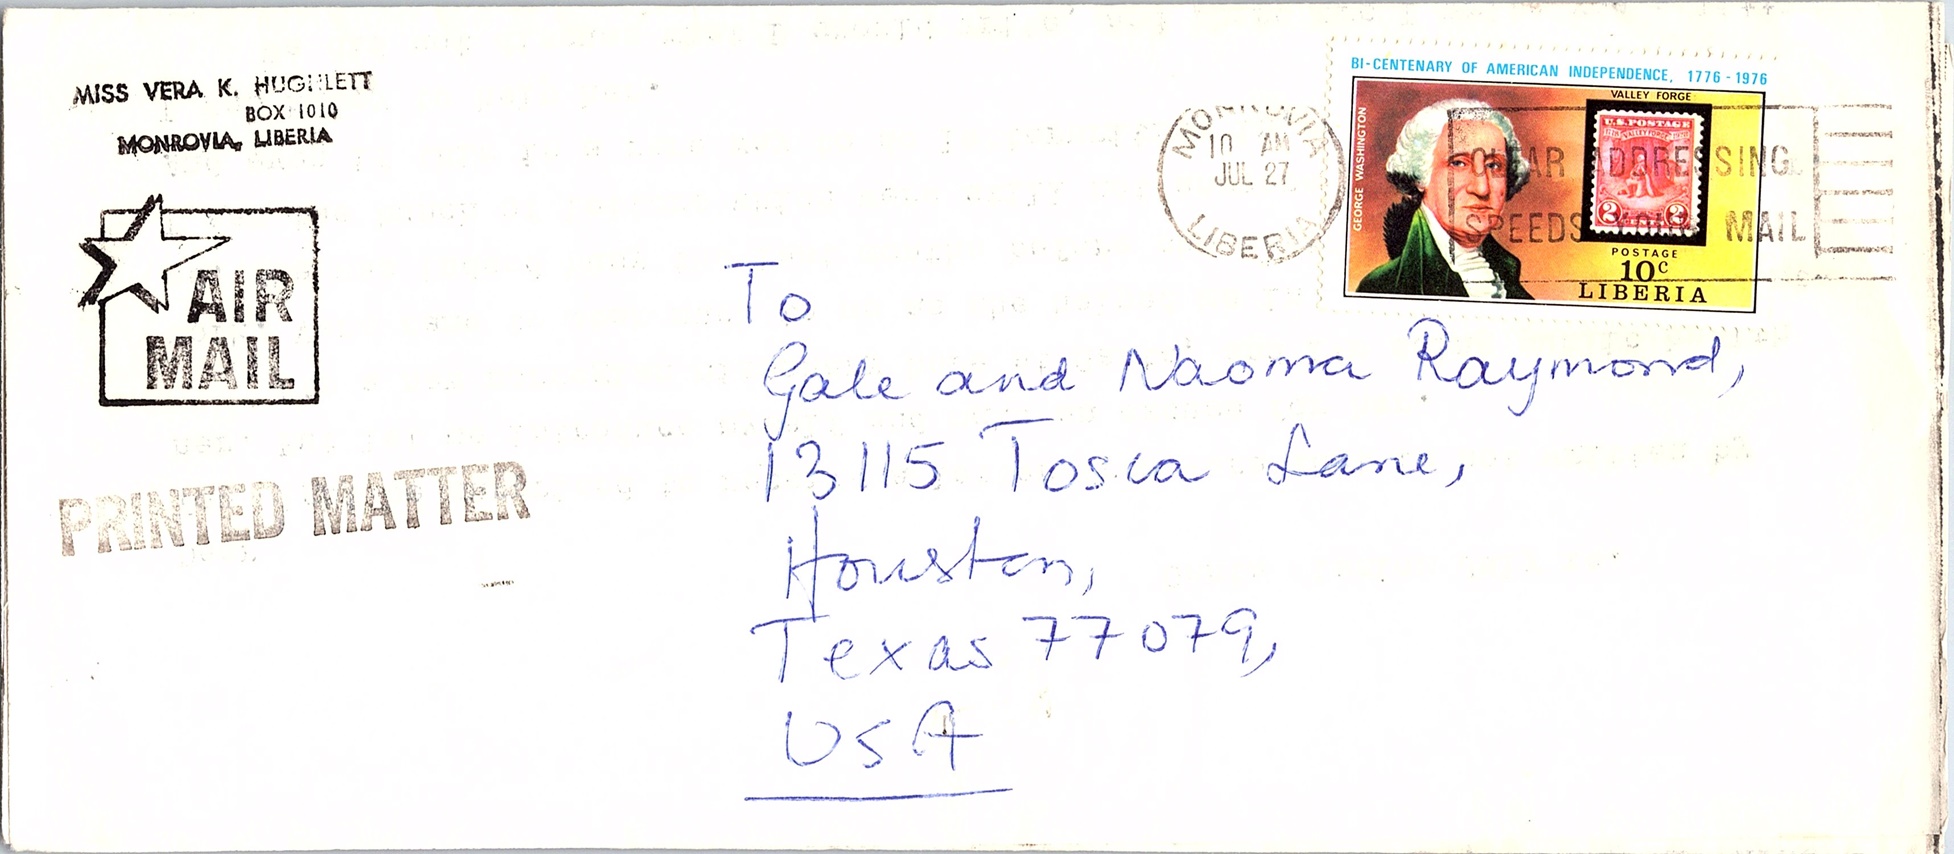 MISS VERA K. HUGHLETT
BOX 1010
MONROVIA, LIBERIA
AIR
MAIL
PRINTED MATTER
MONROVIA
10 AM
JUL 27
LIBERIA
CLEAR ADDRESSING
SPEEDS YOUR MAIL
BI-CENTENARY OF AMERICAN INDEPENDENCE, 1776 - 1976
GEORGE WASHINGTON
VALLEY FORGE
U.S. POSTAGE
2 2
POSTAGE
10c
LIBERIA
To
Gale and Naoma Raymond,
13115 Tosca Lane,
Houston,
Texas 77079,
USA